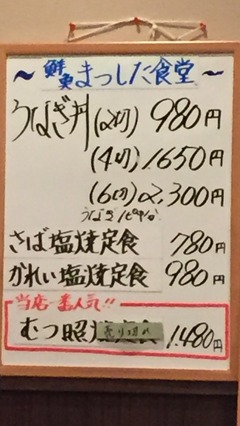 ～鮮魚まつした食堂～
うなぎ丼(2切)980円
(4切)1650円
(6切)2,300円
さば塩焼定食 780円
かれい塩焼定食 980円
当店一番人気!!
むつ照 売り切れ 定食 1,480円